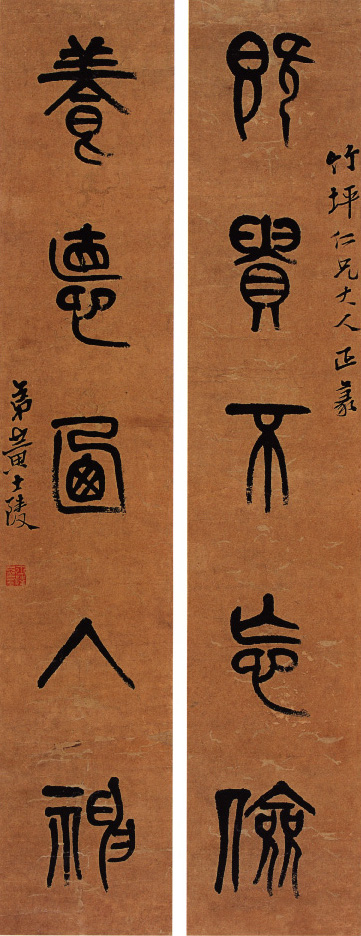 竹坪仁兄大人正篆
既貴不忘儉
養悳人
弟黃士陵